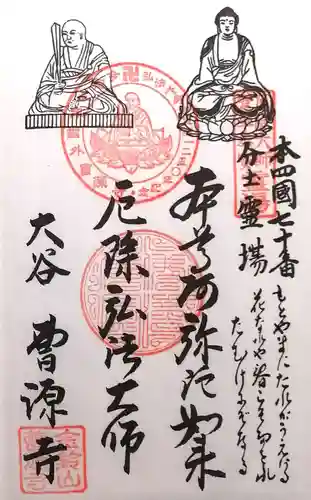 本四國七十番
分土霊場
もとやまにたれがうゑける
花なれや春こそたをれ
たむけにぞなる
本尊阿弥陀如来
厄除弘法大師
大谷 曹源寺